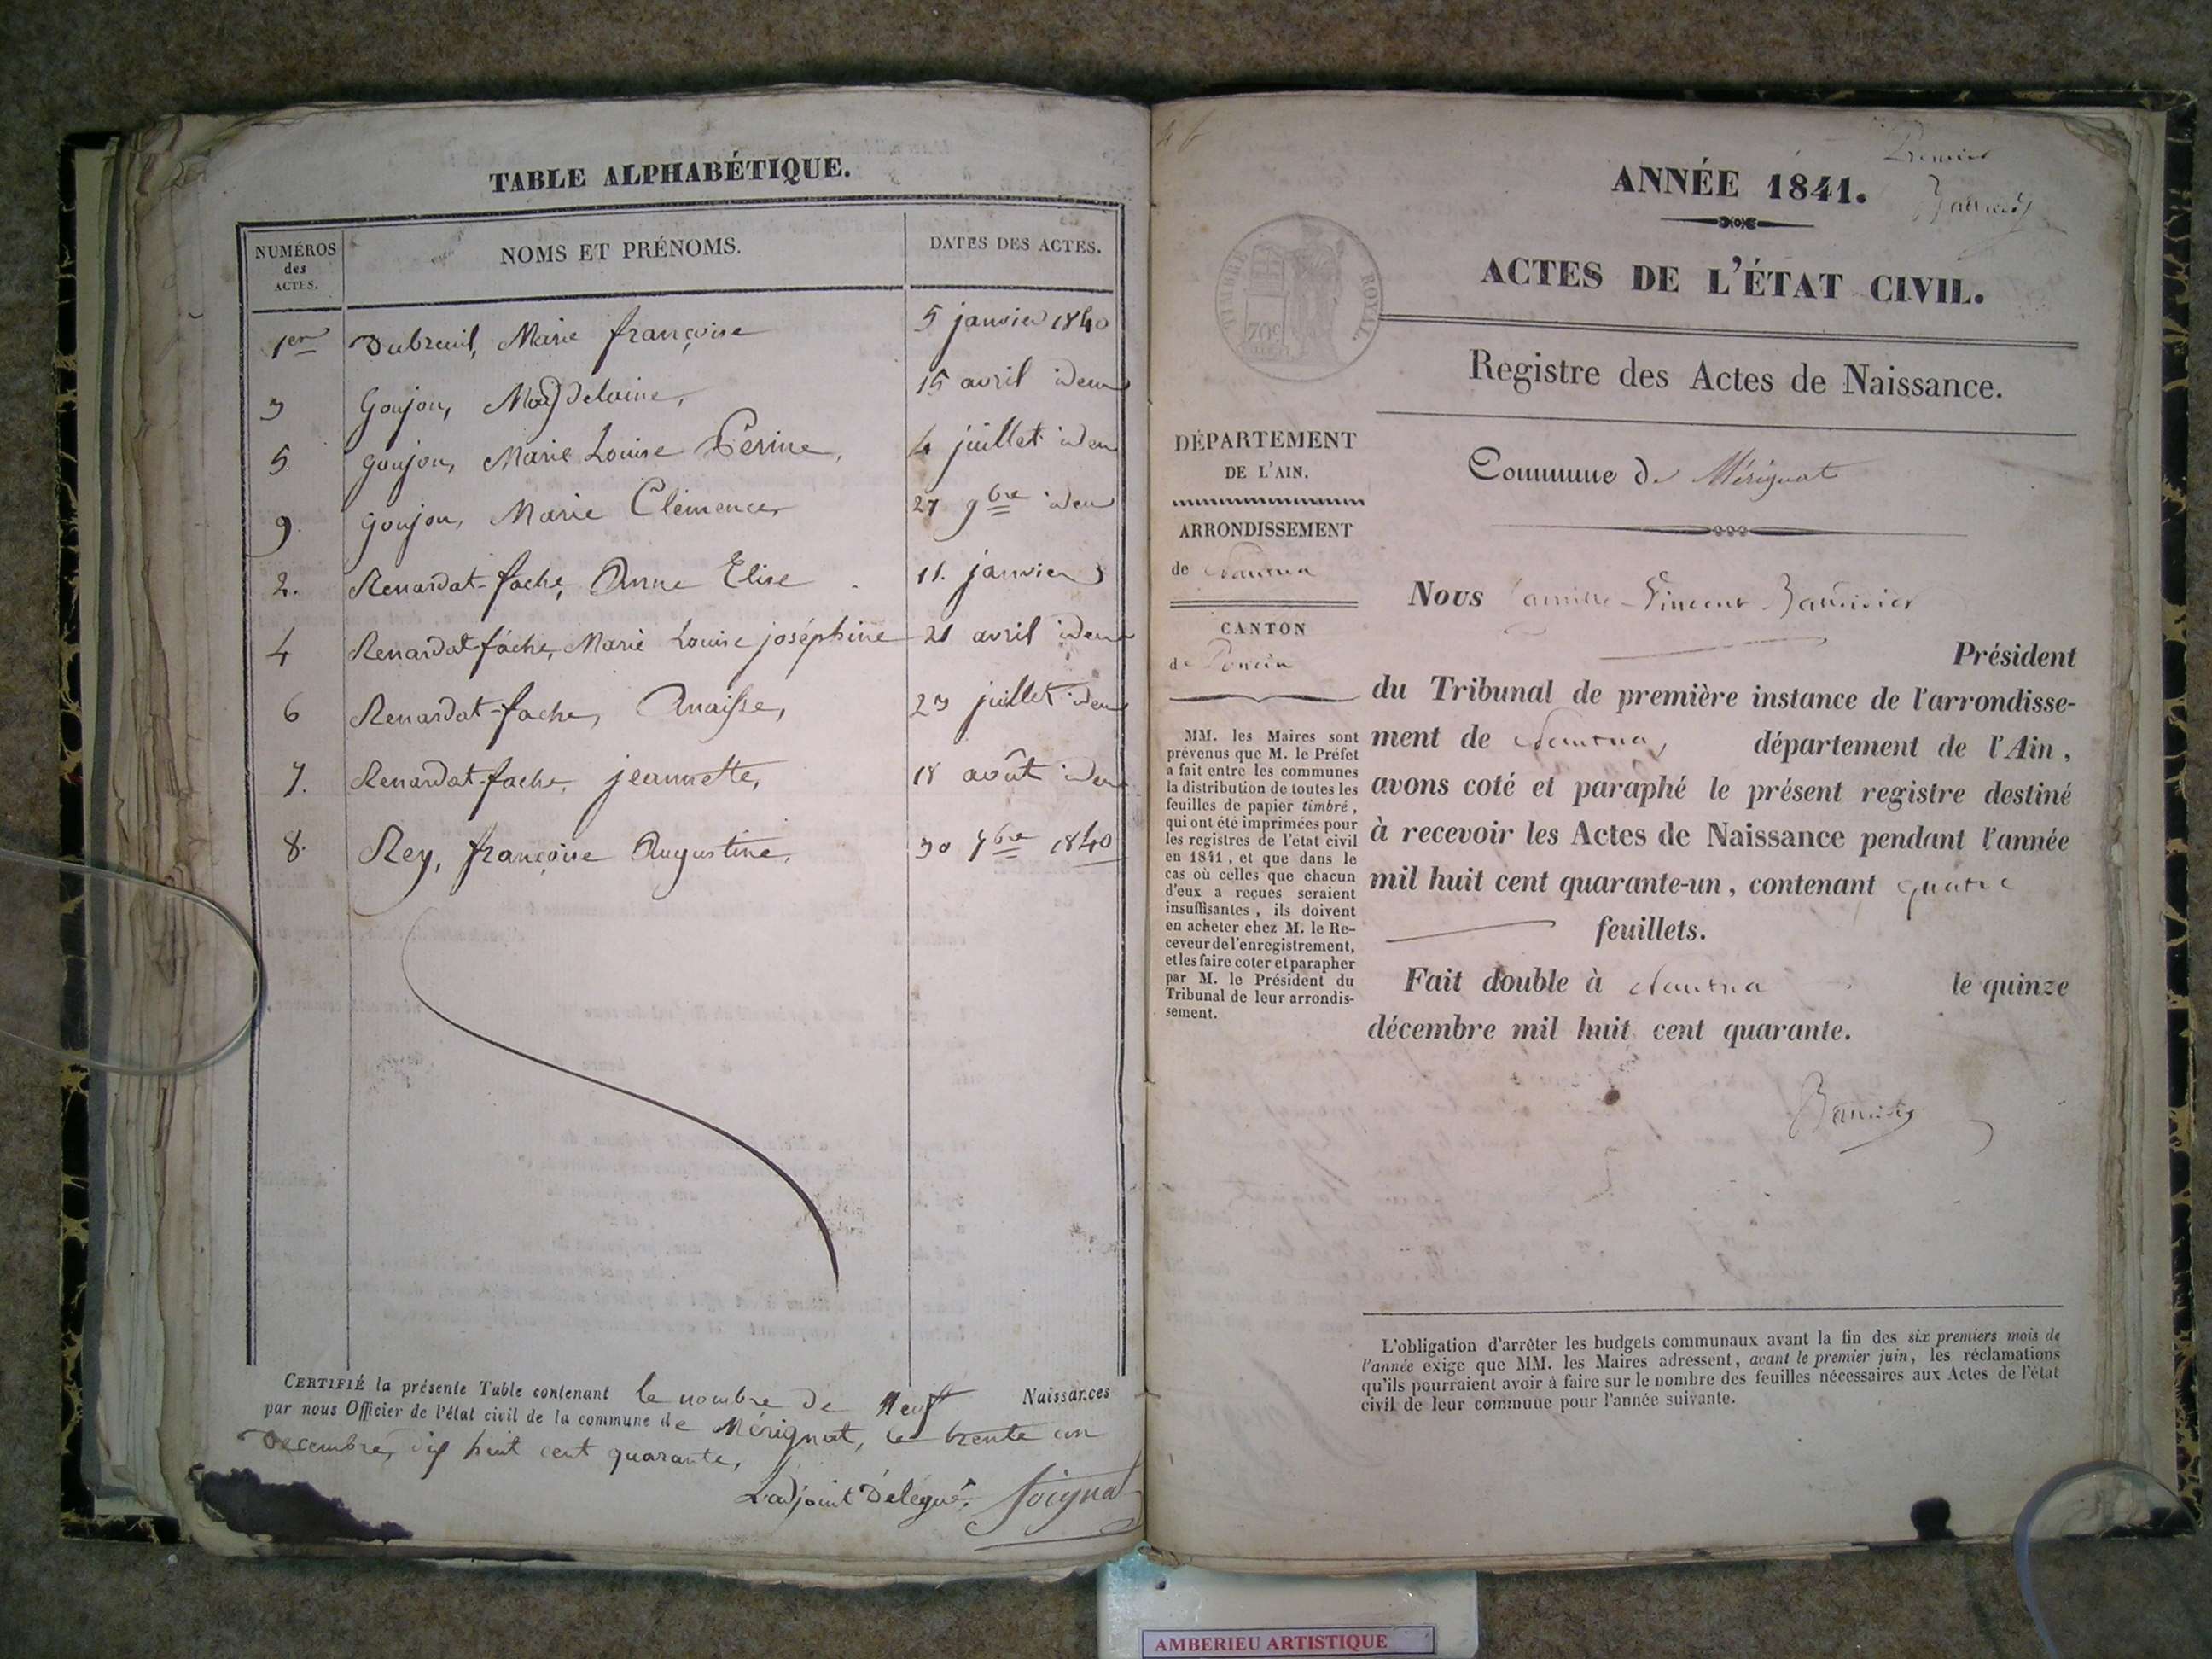 TABLE ALPHABÉTIQUE.
NUMÉROS des ACTES. NOMS ET PRÉNOMS. DATES DES ACTES.
1er Dubreuil, Marie françoise 5 janvier 1840
3 Goujon, Magdelaine, 15 avril idem
5 Goujon, Marie Louise Perine, 4 juillet idem
9. Goujon, Marie Clémence 27 9bre idem
2. Renardat-fache, Anne Elise 11. janvier
4 Renardat-fache, Marie Louise joséphine 21 avril idem
6 Renardat-fache, Anaisse, 23 juillet idem
7. Renardat-fache, jeannette, 18 août idem
8. Rey, françoise Augustine, 30 7bre 1840
CERTIFIÉ la présente Table contenant le nombre de Neuf Naissances
par nous Officier de l'état civil de la commune de Mérignat, le trente un
Decembre, dix huit cent quarante,
L'adjoint Délégué,
ANNÉE 1841.
Premier
ACTES DE L'ÉTAT CIVIL.
TIMBRE ROYAL.
70c
Registre des Actes de Naissance.
Commune de Mérignat
DÉPARTEMENT
DE L'AIN.
ARRONDISSEMENT
de Nantua
CANTON
de Poncin
MM. les Maires sont
prévenus que M. le Préfet
a fait entre les communes
la distribution de toutes les
feuilles de papier timbré,
qui ont été imprimées pour
les registres de l'état civil
en 1841, et que dans le
cas où celles que chacun
d'eux a reçues seraient
insuffisantes, ils doivent
en acheter chez M. le Re-
ceveur de l'enregistrement,
et les faire coter et parapher
par M. le Président du
Tribunal de leur arrondis-
sement.
Nous Camille-Vincent
Président
du Tribunal de première instance de l'arrondisse-
ment de Nantua, département de l'Ain,
avons coté et paraphé le présent registre destiné
à recevoir les Actes de Naissance pendant l'année
mil huit cent quarante-un, contenant quatre
feuillets.
Fait double à Nantua le quinze
décembre mil huit cent quarante.
L'obligation d'arrêter les budgets communaux avant la fin des six premiers mois de
l'année exige que MM. les Maires adressent, avant le premier juin, les réclamations
qu'ils pourraient avoir à faire sur le nombre des feuilles nécessaires aux Actes de l'état
civil de leur commune pour l'année suivante.
AMBERIEU ARTISTIQUE